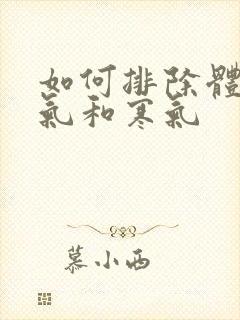 如何排除體
氣和寒氣
慕小西